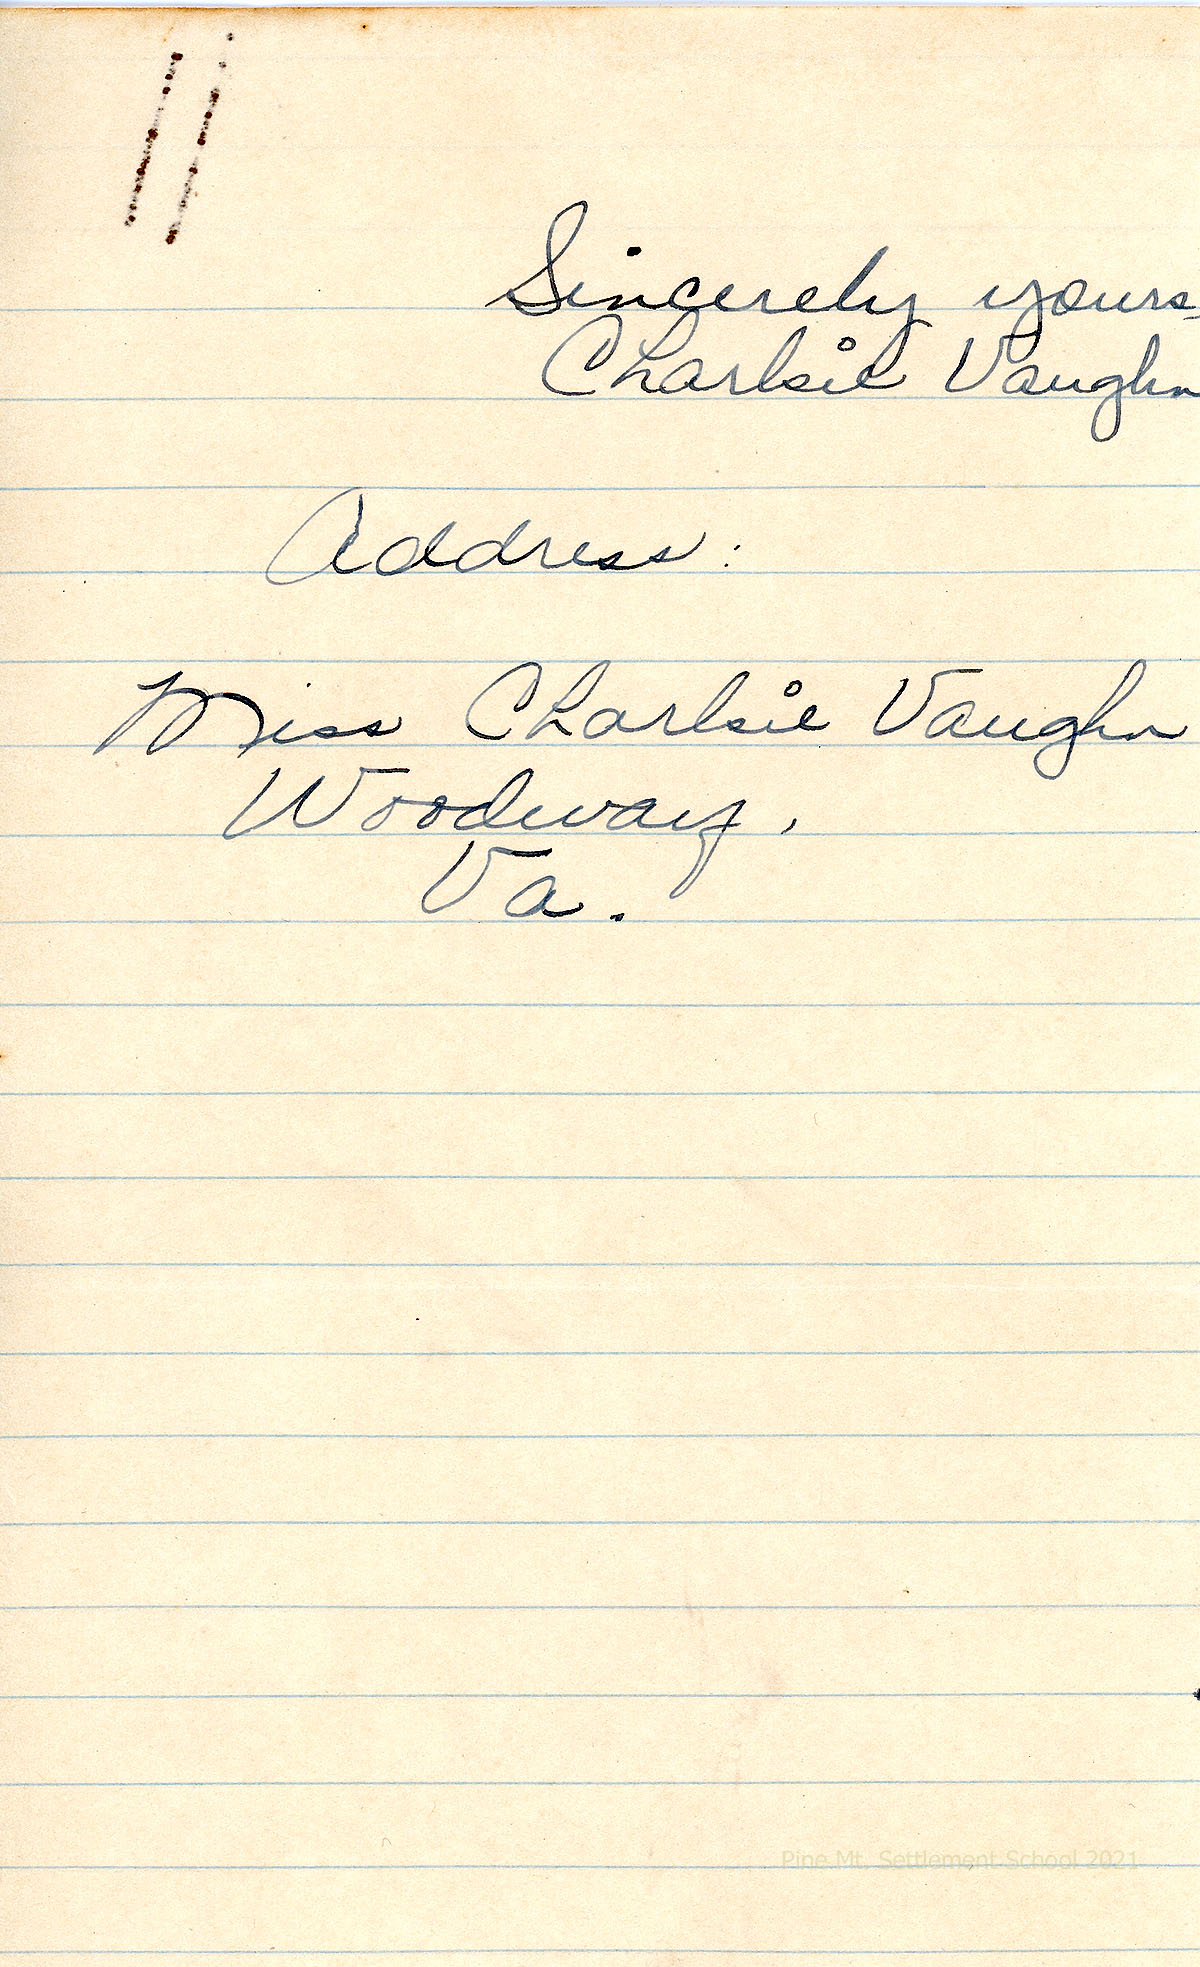 Sincerely yours,
Charlsie Vaughn
Address:
Miss Charlsie Vaughn
Woodway,
Va.
Pine Mt. Settlement School 2021